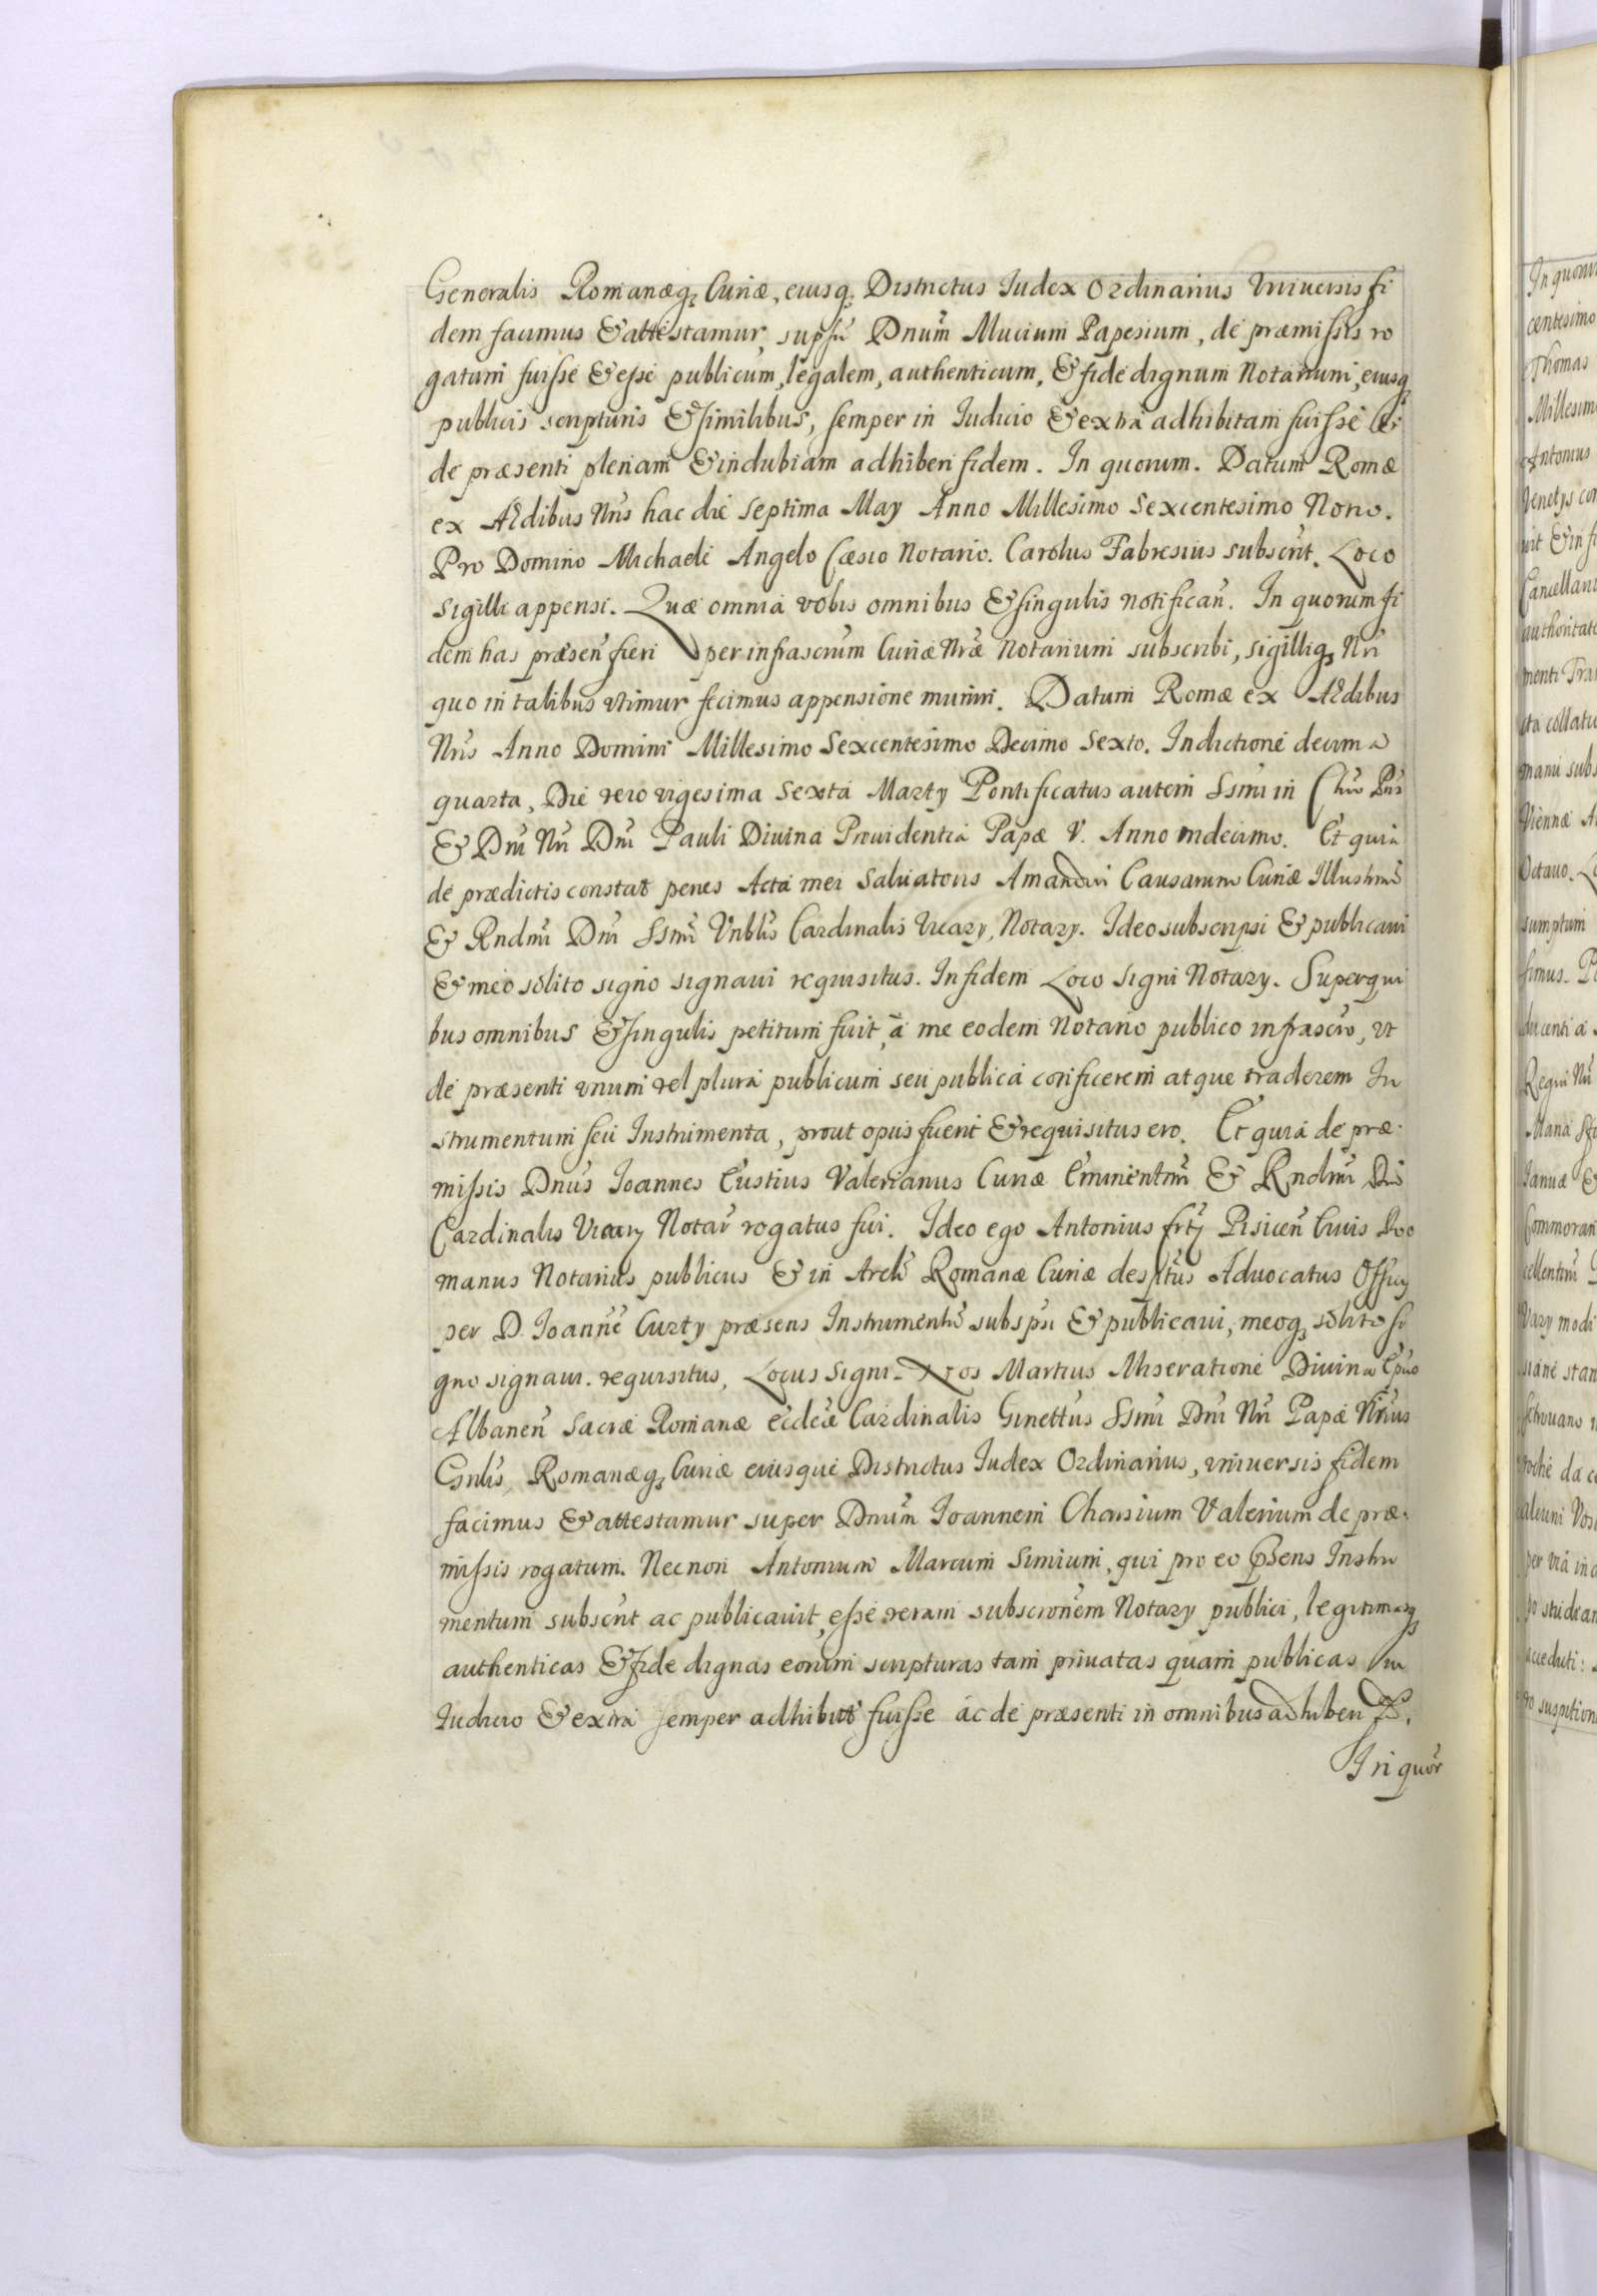 Generalis Romanæq; Curiæ, eiusq; Districtus Iudex Ordinarius Vniuersis fi
dem facimus & attestamur, supsũ Dnum̃ Mucium Papesium, de præmissis ro
gatum fuisse & esse publicum, legalem, authenticum, & fide dignum Notarium, eiusq;
publicis scripturis & similibus, semper in Iudicio & extra adhibitam fuisse &
de præsenti plenam & indubiam adhiberi fidem. In quorum. Datum Romæ
ex Ædibus Nr̃is hac die septima May Anno Millesimo Sexcentesimo Nono.
Pro Domino Michaele Angelo Cæsio Notario. Carolus Fabresius subscrit̃. Loco
sigilli appensi. Quæ omnia vobis omnibus & singulis notifican̄. In quorum fi
dem has præsen̄ fieri per infrascrũm Curiæ Nr̃æ Notarium subscribi, sigilliq; Nr̃i
quo in talibus vtimur fecimus appensione muniri. Datum Romæ ex Ædibus
Nr̃is Anno Domini Millesimo Sexcentesimo Decimo Sexto. Indictione decima
quarta, Die vero vigesima Sexta Marty Pontificatus autem Ssm̃i in Chrõ Pr̃is
& Dn̄i Nr̃i Dn̄i Pauli Diuina Prouidentia Papæ V. Anno vndecimo. Et quia
de prædictis constat penes Acta mei Saluatoris Amandini Causarum Curiæ Illustrm̃i
& Rndm̃i Dn̄i Ssm̃i Vrblis Cardinalis Vicary, Notary. Ideo subscripsi & publicaui
& meo solito signo signaui requisitus. In fidem Loco Signi Notary. Super qui
bus omnibus & singulis petitum fuit, à me eodem Notario publico infrascrõ, vt
de præsenti vnum vel plura publicum seu publica conficerem atque traderem In
strumentum seu Instrumenta, prout opus fuerit & requisitus ero. Et quia de præ-
missis Dnũs Ioannes Eustius Valerianus Curiæ Eminentm̃i & Rndm̃i Dn̄i
Cardinalis Vicary Notar̃ rogatus fui. Ideo ego Antonius Pisicen̄ Ciuis Ro
manus Notarius publicus & in Archõ Romanæ Curiæ desptũs Aduocatus Officy
per D. Ioannẽ Curty præsens Instrumentũ subspsi & publicaui, meoq; solito si
gno signaui. requisitus, Locus Signi. Nos Martius Miseratione Diuina Epũs
Albanen̄ Sacræ Romanæ Ecclẽæ Cardinalis Ginettus Ssm̃i Dn̄i Nr̃i Papæ Vr̃ius
Gnlis, Romanæq; Curiæ eiusque Districtus Iudex Ordinarius, vniuersis fidem
facimus & attestamur super Dnum̃ Ioannem Chousium Valerium de præ-
missis rogatum. Necnon Antonium Marcum Simium, qui pro eo p̃sens Instru
mentum subscrit̃ ac publicauit, esse veram subscronẽm Notary publici, legitimasq;
authenticas & fide dignas eorum scripturas tam priuatas quam publicas in
Iudicio & extra semper adhibit̃ fuisse ac de præsenti in omnibus adhiberi
In quor̃